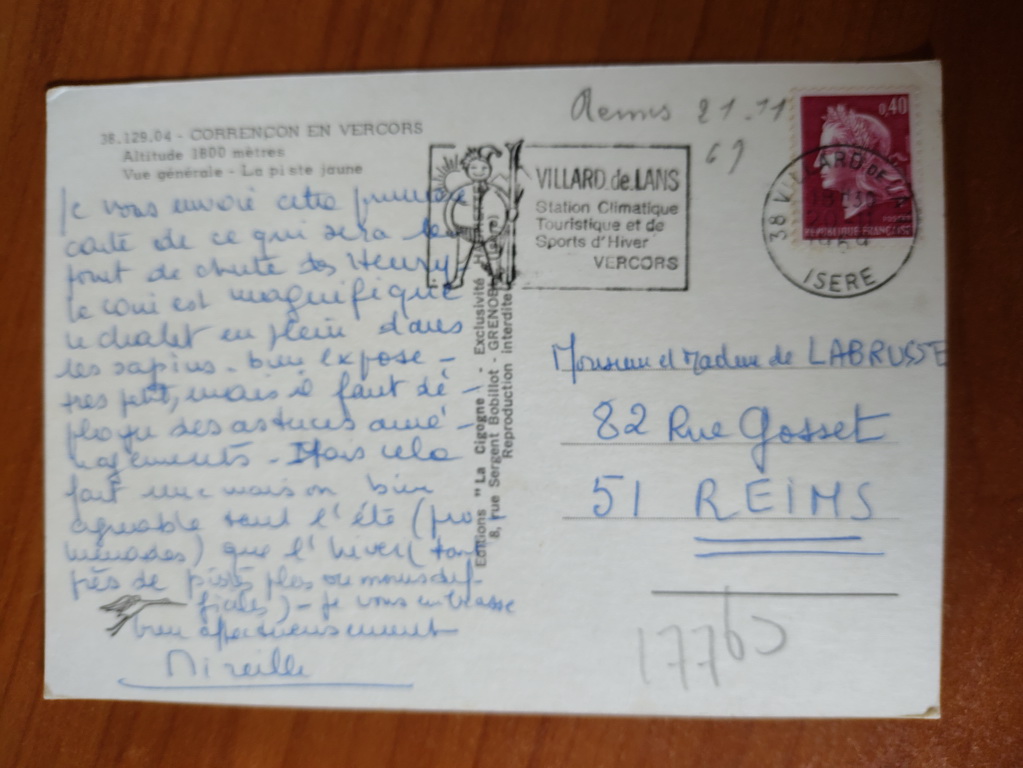 38.129.04 - CORRENÇON EN VERCORS
Altitude 1800 mètres
Vue générale - La piste jaune
Je vous envoie cette première
carte de ce qui sera le
point de chute des Henry
le coin est magnifique
le chalet en plein dans
les sapins - bien exposé -
très petit, mais il faut dé-
ployer des astuces amé-
nagements - Mais cela
fait une maison bien
agréable tant l'été (pro
menades) que l'hiver (tout
près de pistes plus ou moins dif-
ficiles) - je vous embrasse
bien affectueusement
Mireille
Editions "La Cigogne" - Exclusivité
8, rue Sergent Bobillot - GRENOBLE
Reproduction interdite
VILLARD.de.LANS
Station Climatique
Touristique et de
Sports d'Hiver
VERCORS
Reims 21.11
69
0,40
REPUBLIQUE FRANÇAISE
38 VILLARD-DE-
1969
ISERE
Monsieur et Madame de LABRUSSE
82 Rue Gosset
51 REIMS